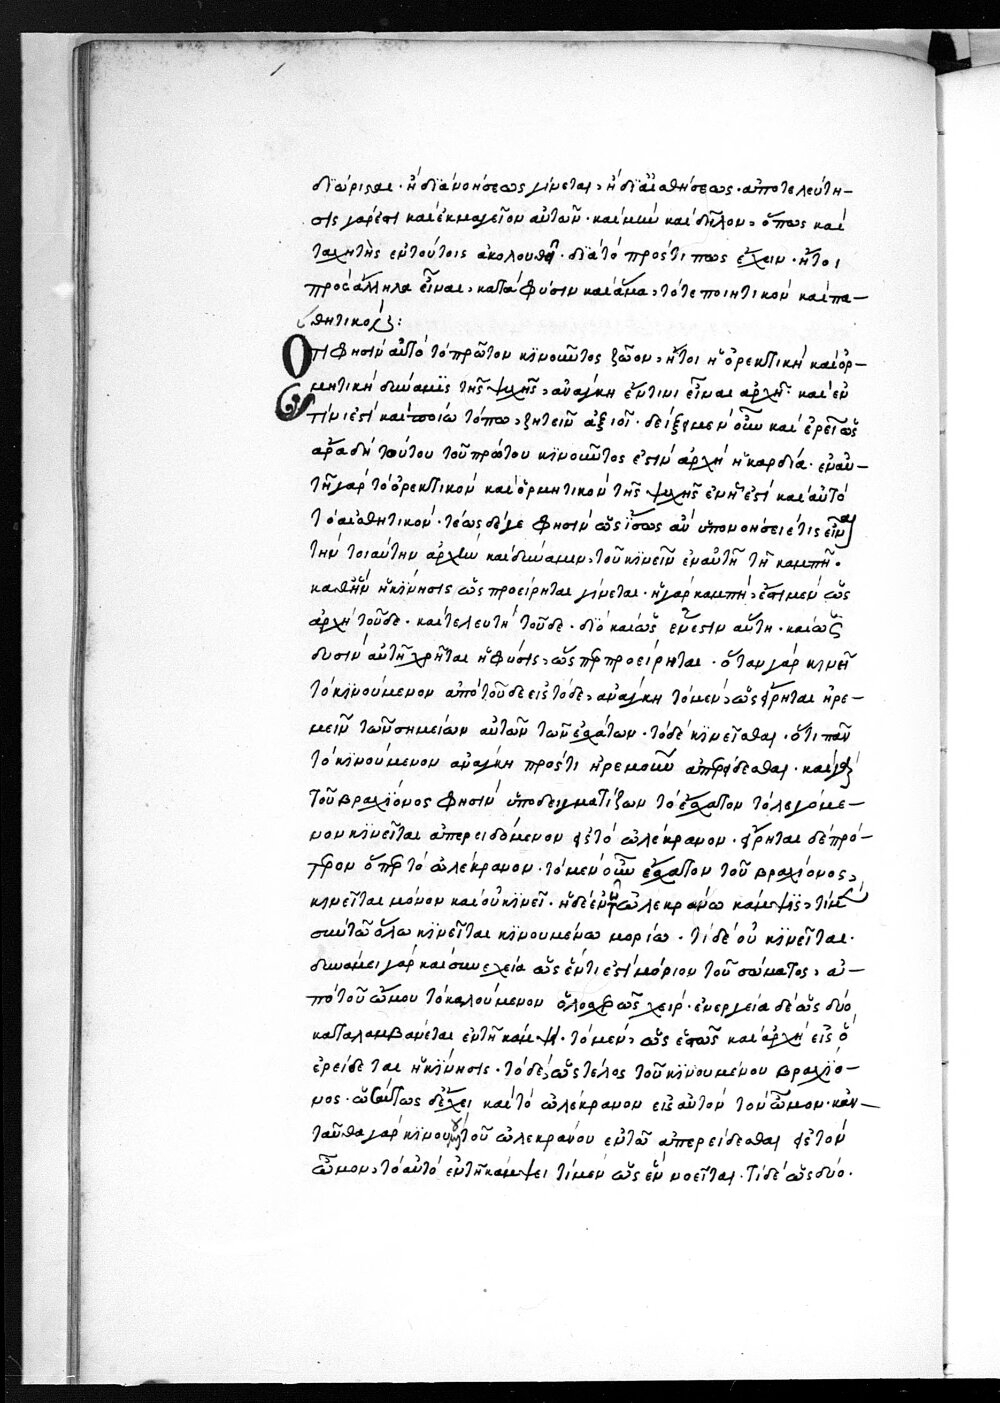 διώρισται · ἢ διὰ νοήσεως γίνεται, ἢ δι' αἰσθήσεως · ἀποτελεύτη-
σις γάρ ἐστι καὶ ἐκμαγεῖον αὐτῶν · καὶ μὴν καὶ δῆλον, ὅπως καὶ
ταχυτὴς ἐν τούτοις ἀκολουθεῖ · διὰ τὸ πρός τί πως ἔχειν · ἤτοι
πρὸς ἄλληλα εἶναι, κατὰ φύσιν καὶ ἅμα, τότε ποιητικὸν καὶ πα-
θητικόν :
Ὅτι φησὶν αὐτὸ τὸ πρῶτον κινοῦντος ζῶον, ἤτοι ἡ ὀρεκτικὴ καὶ ὁρ-
μητικὴ δύναμις τῆς ψυχῆς, ἀνάγκη ἔν τινι εἶναι ἀρχῇ · καὶ ἐν
τίνι ἐστὶ καὶ ποίω τόπω, ζητεῖν ἀξιοῖ · δείξομεν οὖν καὶ ἐρεῖ ὡς
ἄρα δὴ τούτου τοῦ πρώτου κινοῦντος ἐστὶν ἀρχὴ ἡ καρδία · ἐν αὐ-
τῆ γὰρ τὸ ὀρεκτικὸν καὶ ὁρμητικὸν τῆς ψυχῆς ἐν ἧ ἐστὶ καὶ αὐτὸ
τὸ αἰσθητικόν · τέως δέ γε φησὶν ὡς ἴσως ἂν ὑπονοήσειέ τις εἶναι
τὴν τοιαύτην ἀρχὴν καὶ δύναμιν, τοῦ κινεῖν ἐν αὐτῆ τῆ καμπῆ ·
καθ' ἣν ἡ κίνησις ὡς προείρηται γίνεται · ἡ γὰρ καμπὴ, ἔστι μὲν ὡς
ἀρχὴ τοῦδε · καὶ τελευτὴ τοῦδε · διὸ καὶ ὡς ἕν ἐστιν αὕτη · καὶ ὡς
δυσὶν αὐτῆ χρῆται ἡ φύσις, ὡς προείρηται · ὅταν γὰρ κινῆ
τὸ κινούμενον ἀπὸ τοῦδε εἰς τόδε, ἀνάγκη τὸ μὲν, ὡς εἴρηται ἠρε-
μεῖν τῶν σημείων αὐτῶν τῶν ἐσχάτων · τὸ δὲ κινεῖσθαι · ὅτι πᾶν
τὸ κινούμενον ἀνάγκη πρός τι ἠρεμοῦν ἀπερείδεσθαι · καὶ
τοῦ βραχίονος φησὶν ὑποδειγματίζων τὸ ἔσχατον τὸ λεγόμε-
νον κινεῖται ἀπερειδόμενον εἰς τὸ ὠλέκρανον · εἴρηται δὲ πρό-
τερον ὅπερ τὸ ὠλέκρανον · τὸ μὲν οὖν ἔσχατον τοῦ βραχίονος,
κινεῖται μόνον καὶ οὐ κινεῖ · ἡ δὲ ἐν τῶ ὠλεκράνω κάμψις, τὶ μὲν
σὺν τῶ ὅλω κινεῖται κινουμένω μορίω · τὶ δὲ οὐ κινεῖται ·
δυνάμει γὰρ καὶ συνεχεία ὡς ἕν τι ἐστὶ μόριον τοῦ σώματος, ἀ-
πὸ τοῦ ὤμου τὸ καλούμενον ὁλοσχερῶς χείρ · ἐνεργεία δὲ ὡς δύο
καταλαμβάνεται ἐν τῆ κάμψει · τὸ μὲν, ὡς ἑστὼς καὶ ἀρχὴ εἰς ὃ
ἐρείδεται ἡ κίνησις · τὸ δὲ, ὡς τέλος τοῦ κινουμένου βραχίο-
νος · ὡσαύτως δ' ἔχει καὶ τὸ ὠλέκρανον εἰς αὐτὸν τὸν ὦμον · κἀν-
ταῦθα γὰρ κινουμένου τοῦ ὠλεκράνου ἐν τῶ ἀπερείδεσθαι εἰς τὸν
ὦμον, τὸ αὐτὸ ἐν τῆ κάμψει τὶ μὲν ὡς ἓν νοεῖται · τὶ δὲ ὡς δύο ·